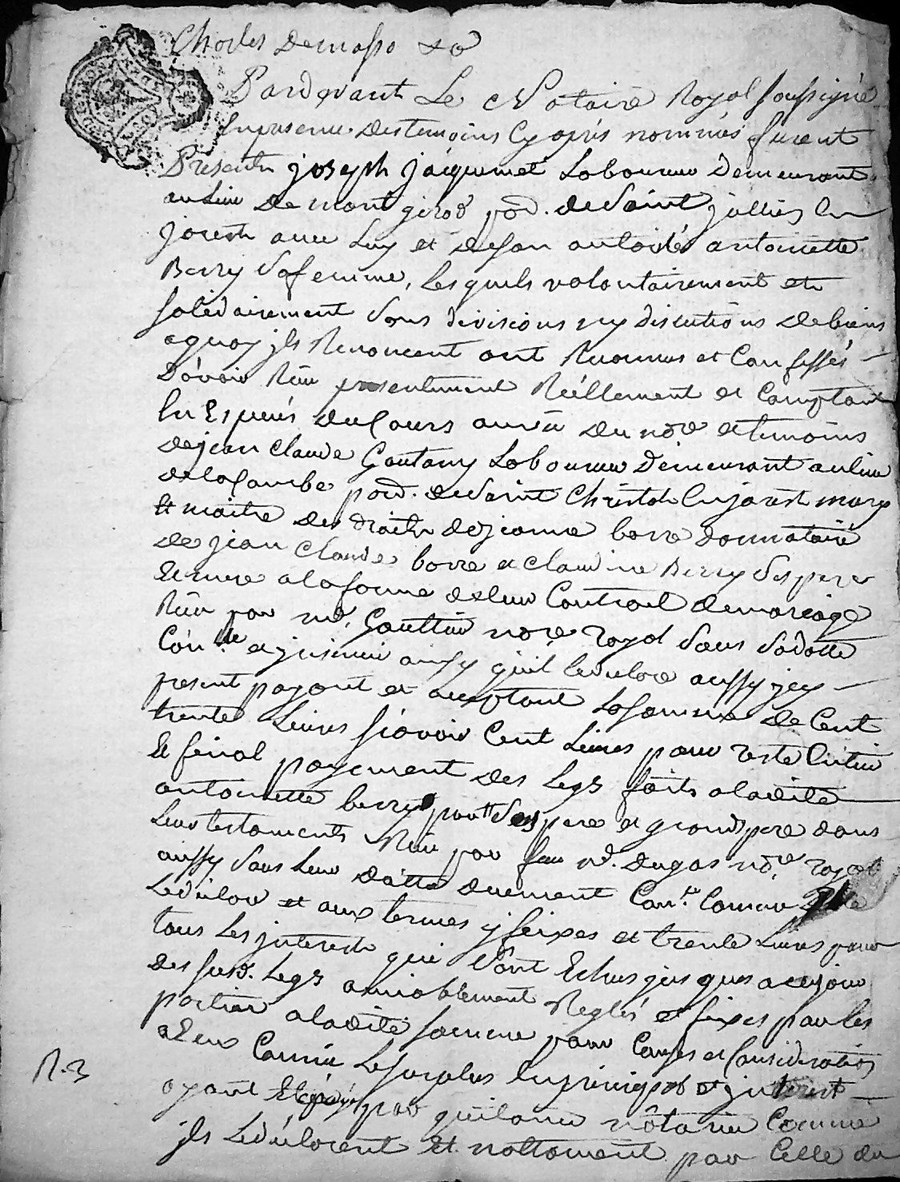 Charles Demasso
Pardevant Le Notaire Royal soussigné
En presence des temoins Cy aprés nommés furent
Présents joseph jacquemet Laboureur demeurant
au lieu de mont girod par. de Saint jullien En
jarest avec luy et de son autorité antoinette
Berry sa femme, Lesquels volontairement et
solidairement sans divisions ny discutions de biens
a quoy jls Renoncent ont Reconnus et Confessés
D'avoir Reçu presentement Réellement et Comptant
En Especes du Cours a veüe du nore et temoins
de jean Claude Laboureur demeurant au lieu
de la Combe par. de Saint Christoh En jarest mary
et maitre des droits de jeanne borre donnataire
de jean Claude borre et Claudine Berry ses pere
et mere a la forme de leur Contract de mariage
Reçu par me. Gaultier nore royal sous sa datte
Con.lé et jnsinué ainsy qu'il le declare aussy jcy
present payant et acceptant La somme de Cent
trente Livres sçavoir Cent Livres pour reste Entier
et final payement des Legs faits a ladite
antoinette berry par ses pere et grand pere dans
Leur testaments Reçu par feu me. dugas nore. royal
aussy sous leur datte duement Con.lé Comme
Le declare et aux termes y fixés et trente Livres pour
tous Les jnterests qui sont Echus jusques a ce jour
des susd. Legs amiablement Reglés et fixés par les
parties a ladite somme pour Causes et Considerations
a Eux Connüe Le surplus En principal et jnterest
ayant Eté payé par quitance nottarié Comme
jls Le declarent et nottament par Celle du
R.3